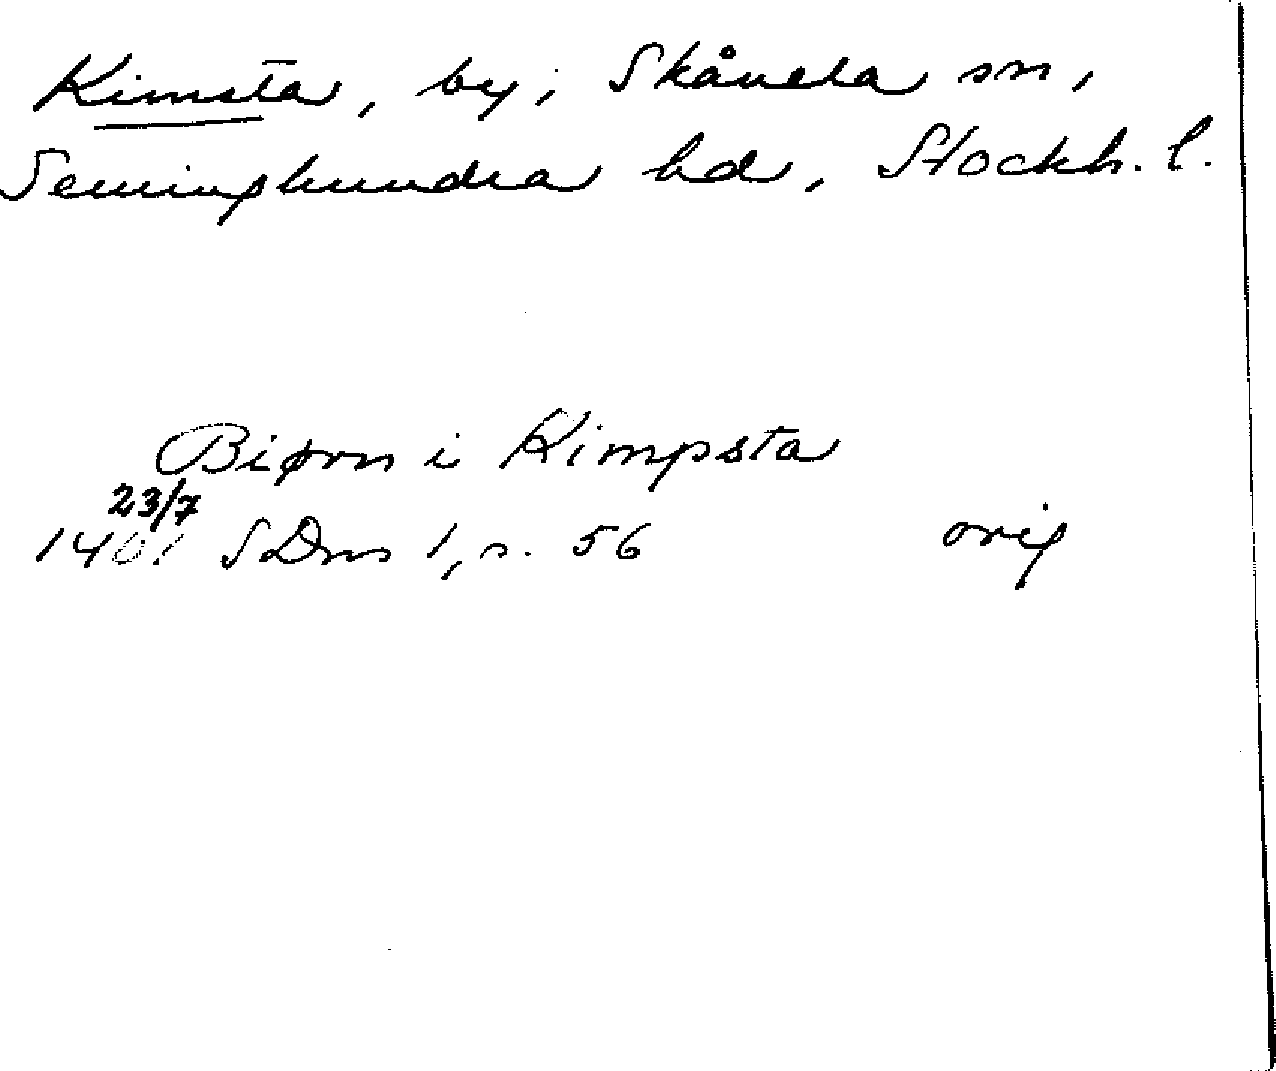 Kimsta, by, Skånela sn,
Seminghundra hd, Stockh. l.
Biørn i Kimpsta
23/7
1401 SDns 1, s. 56 orig